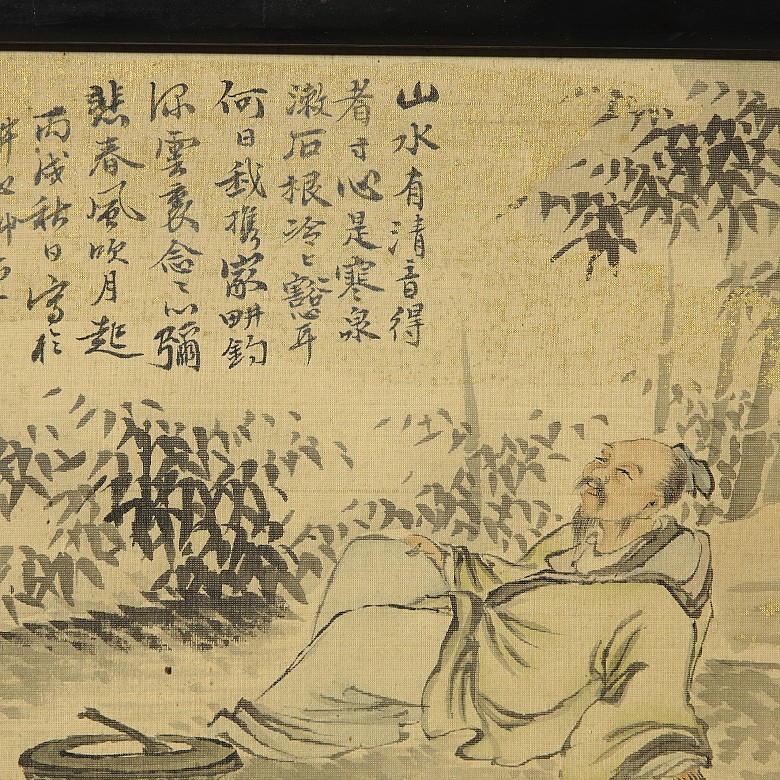 山水有清音得
者寸心是寒泉
漱石根冷々豁耳
何日我攜家耕釣
深雲裏念之心彌
悲春風吹月起
丙戌秋日寫於